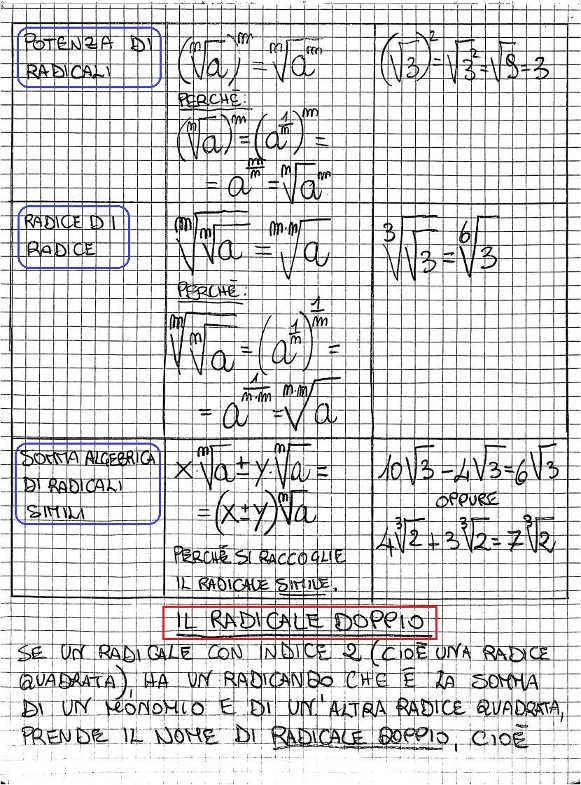 POTENZA DI
RADICALI
(ⁿ√a)ᵐ = ⁿ√aᵐ
PERCHÈ:
(ⁿ√a)ᵐ = (a^(1/n))ᵐ =
= a^(m/n) = ⁿ√aᵐ
(√3)² = √3² = √9 = 3
RADICE DI
RADICE
ᵐ√ⁿ√a = ᵐ·ⁿ√a
PERCHÈ:
ᵐ√ⁿ√a = (a^(1/n))^(1/m) =
= a^(1/(n·m)) = ᵐ·ⁿ√a
³√√3 = ⁶√3
SOMMA ALGEBRICA
DI RADICALI
SIMILI
x ⁿ√a ± y ⁿ√a =
= (x ± y) ⁿ√a
PERCHÈ SI RACCOGLIE
IL RADICALE SIMILE.
10√3 - 4√3 = 6√3
OPPURE
4³√2 + 3³√2 = 7³√2
IL RADICALE DOPPIO
SE UN RADICALE CON INDICE 2 (CIOÈ UNA RADICE
QUADRATA), HA UN RADICANDO CHE È LA SOMMA
DI UN MONOMIO E DI UN'ALTRA RADICE QUADRATA,
PRENDE IL NOME DI RADICALE DOPPIO, CIOÈ